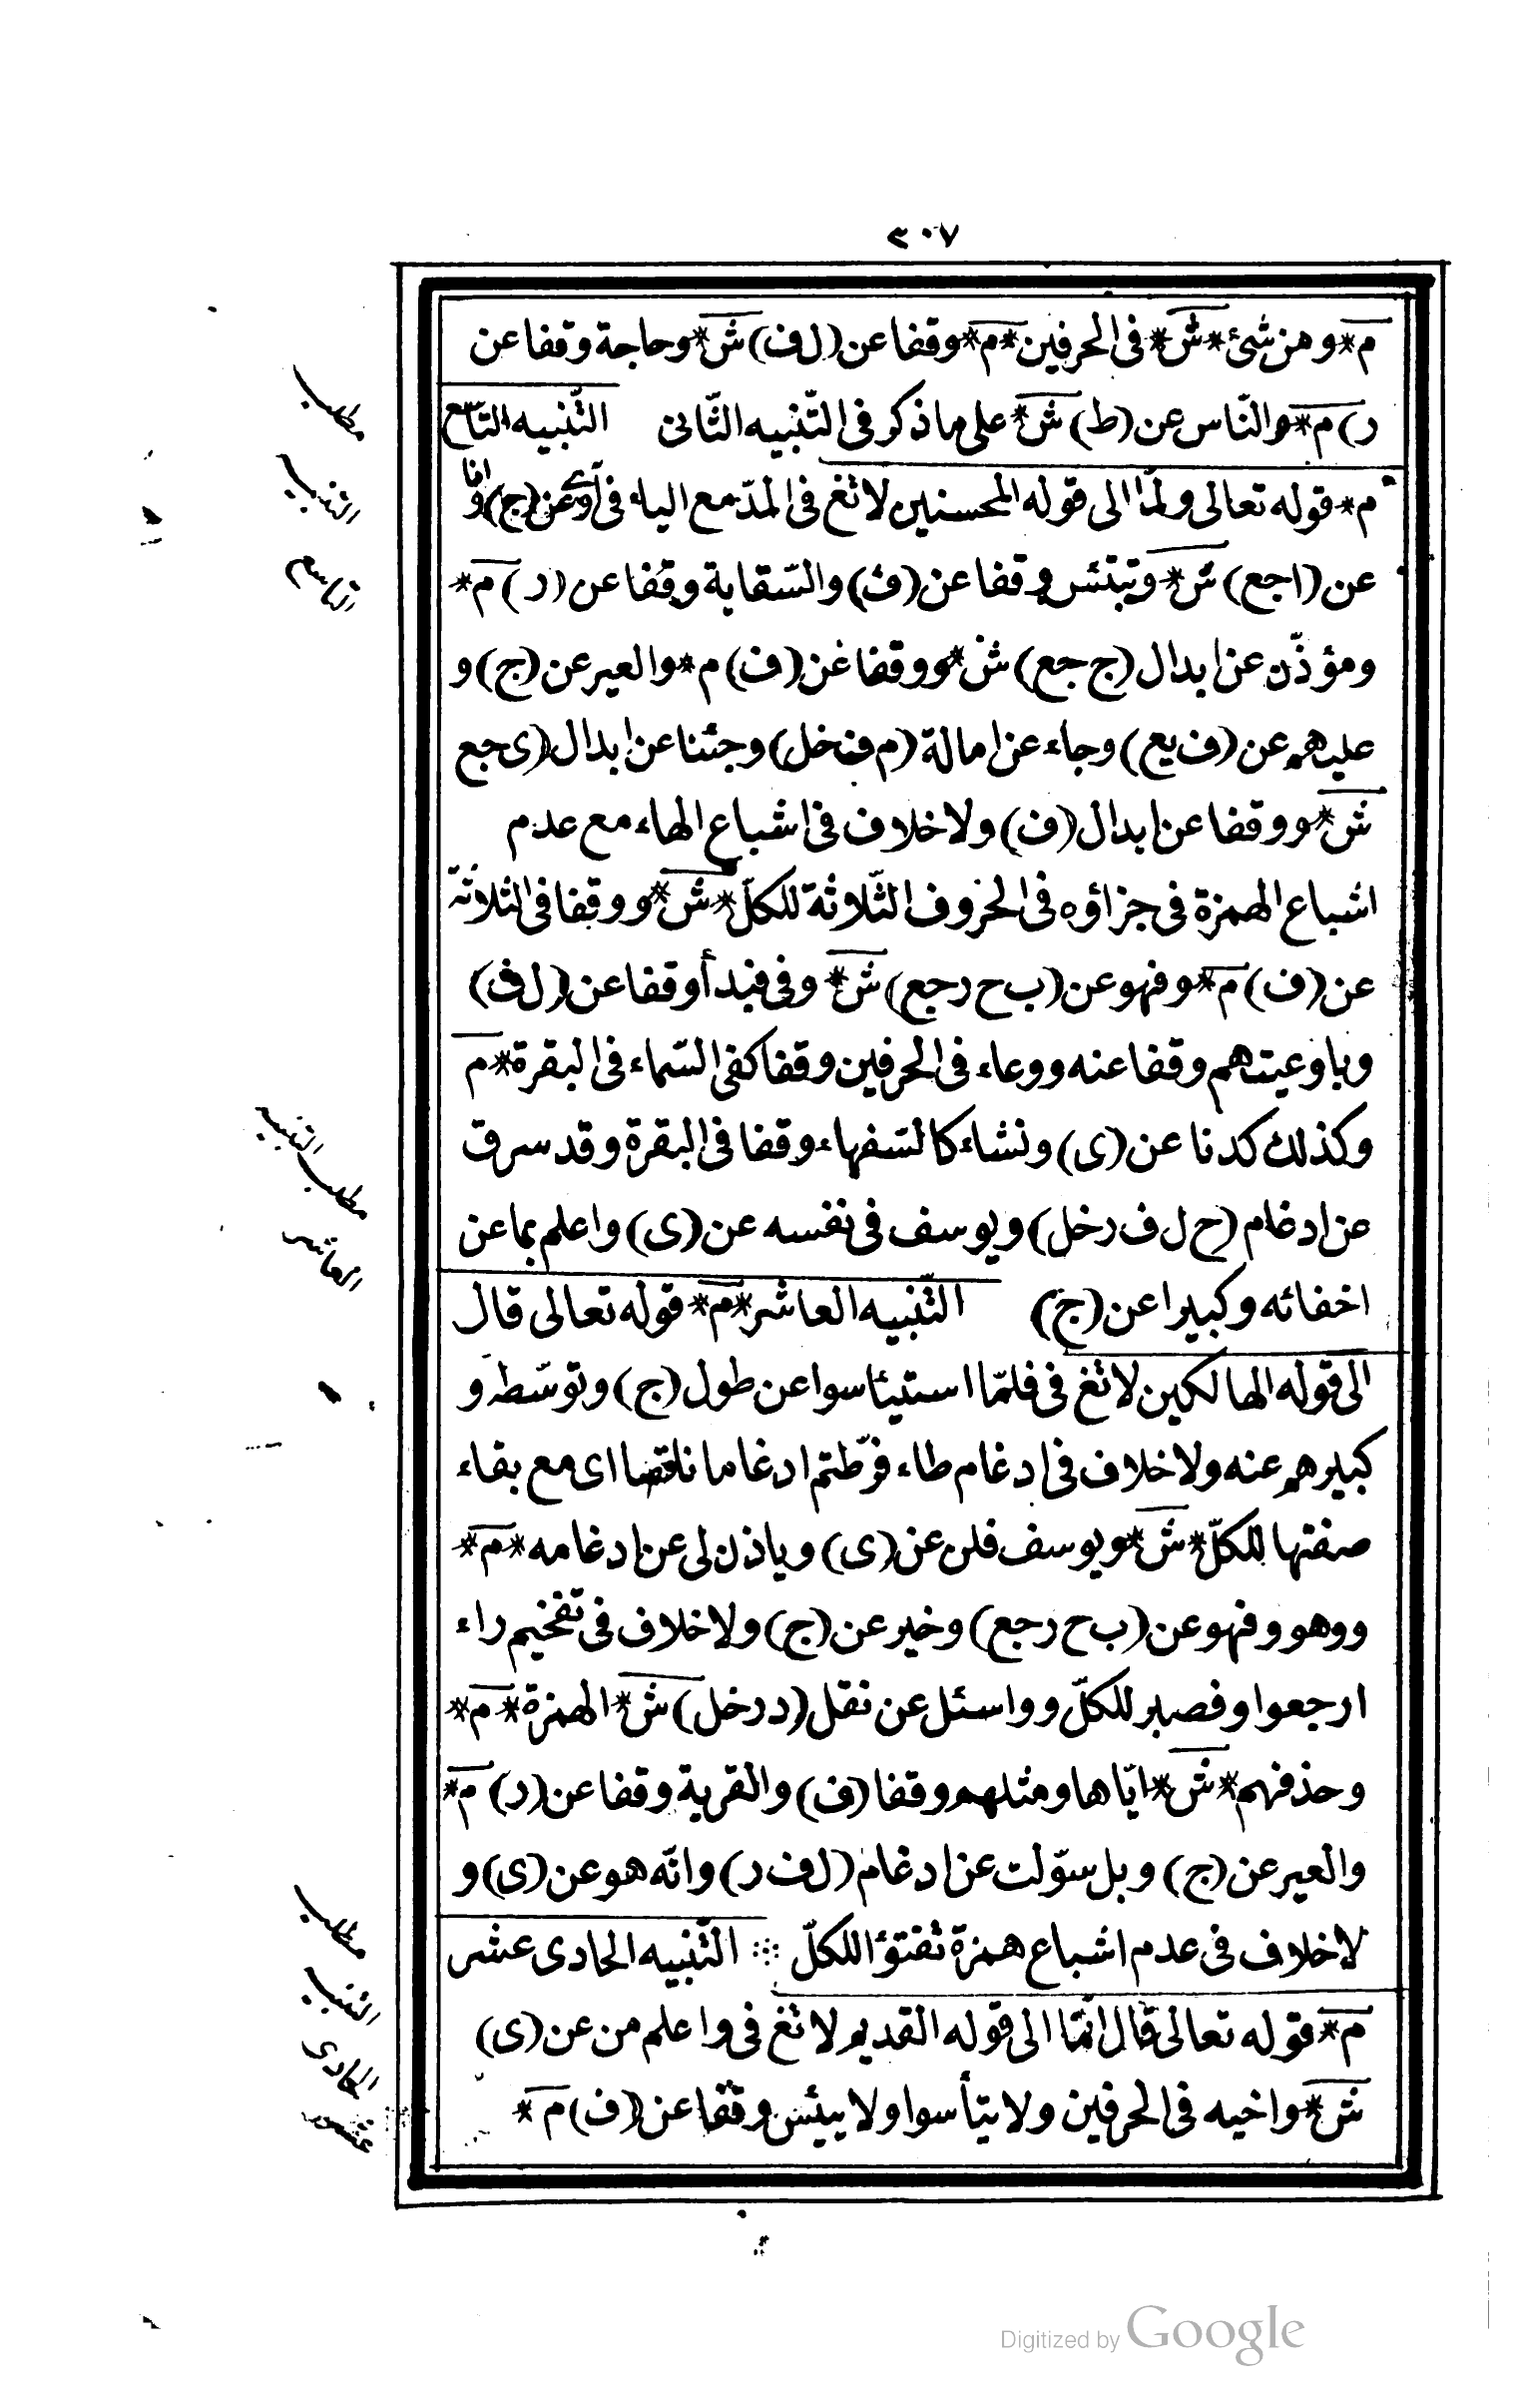 ٢٠٧
م * ومن شئ * ش * فى الحرفين * م * وقفا عن (ل ف) ش * وحاجة وقفا عن
ر) م * والنّاس عن (ط) ش * على ما ذكر فى التّنبيه الثّانى التّنبيه التّاسع
م * قوله تعالى ولمّا الى قوله المحسنين لا تغ فى المدّ مع الياء فى آوى عن (ج) وانا
عن (ا جع) ش * وتبتئس وقفا عن (ف) والسّقاية وقفا عن (ر) م *
ومؤذّن عن ابدال (ج جع) ش * ووقفا عن (ف) م * والعير عن (ج) و
عليهم عن (ف يع) وجاء عن امالة (م ف خل) وجئنا عن ابدال (ى جع
ش * ووقفا عن ابدال (ف) ولا خلاف فى اشباع الهاء مع عدم
اشباع الهمزة فى جزاؤه فى الحروف الثّلاثة للكلّ * ش * ووقفا فى الثلاثة
عن (ف) م * وفهو عن (ب ح ر جع) ش * وفى فبدأ وقفا عن (ل ف)
وباوعيتهم وقفا عنه ووعاء فى الحرفين وقفا كفى السّماء فى البقرة * م
وكذلك كدنا عن (ى) ونشاء كالسّفهاء وقفا فى البقرة وقد سرق
عن ادغام (ح ل ف ر خل) ويوسف فى نفسه عن (ى) واعلم بما عن
اخفائه وكبيرا عن (ج) التّنبيه العاشر * م * قوله تعالى قال
الى قوله الهالكين لا تغ فى فلمّا استيئاسوا عن طول (ج) وتوسّطه و
كبيرهم عنه ولا خلاف فى ادغام طاء فرّطتم ادغاما ناقصا اى مع بقاء
صفتها للكلّ * ش * ويوسف فلن عن (ى) وياذن لى عن ادغامه * م *
ووهو وفهو عن (ب ح ر جع) وخير عن (ج) ولا خلاف فى تفخيم راء
ارجعوا وفصبر للكلّ وواسئل عن نقل (د ر خل) ش * الهمزة * م *
وحذفهم * ش * ايّاها ومثلهم وقفا (ف) والقرية وقفا عن (ر) م *
والعير عن (ج) وبل سوّلت عن ادغام (ل ف ر) وانّه هو عن (ى) و
لا خلاف فى عدم اشباع همزة تفتؤا للكلّ ⁘ التّنبيه الحادى عشر
م * قوله تعالى قال انّما الى قوله القديم لا تغ فى واعلم من عن (ى)
ش * واخيه فى الحرفين ولا تيأسوا ولا ييئس وقفا عن (ف) م *
مطلب
التنبيه
التاسع
مطلب
التنبيه
العاشر
مطلب
التنبيه
الحادى
عشر
Digitized by Google